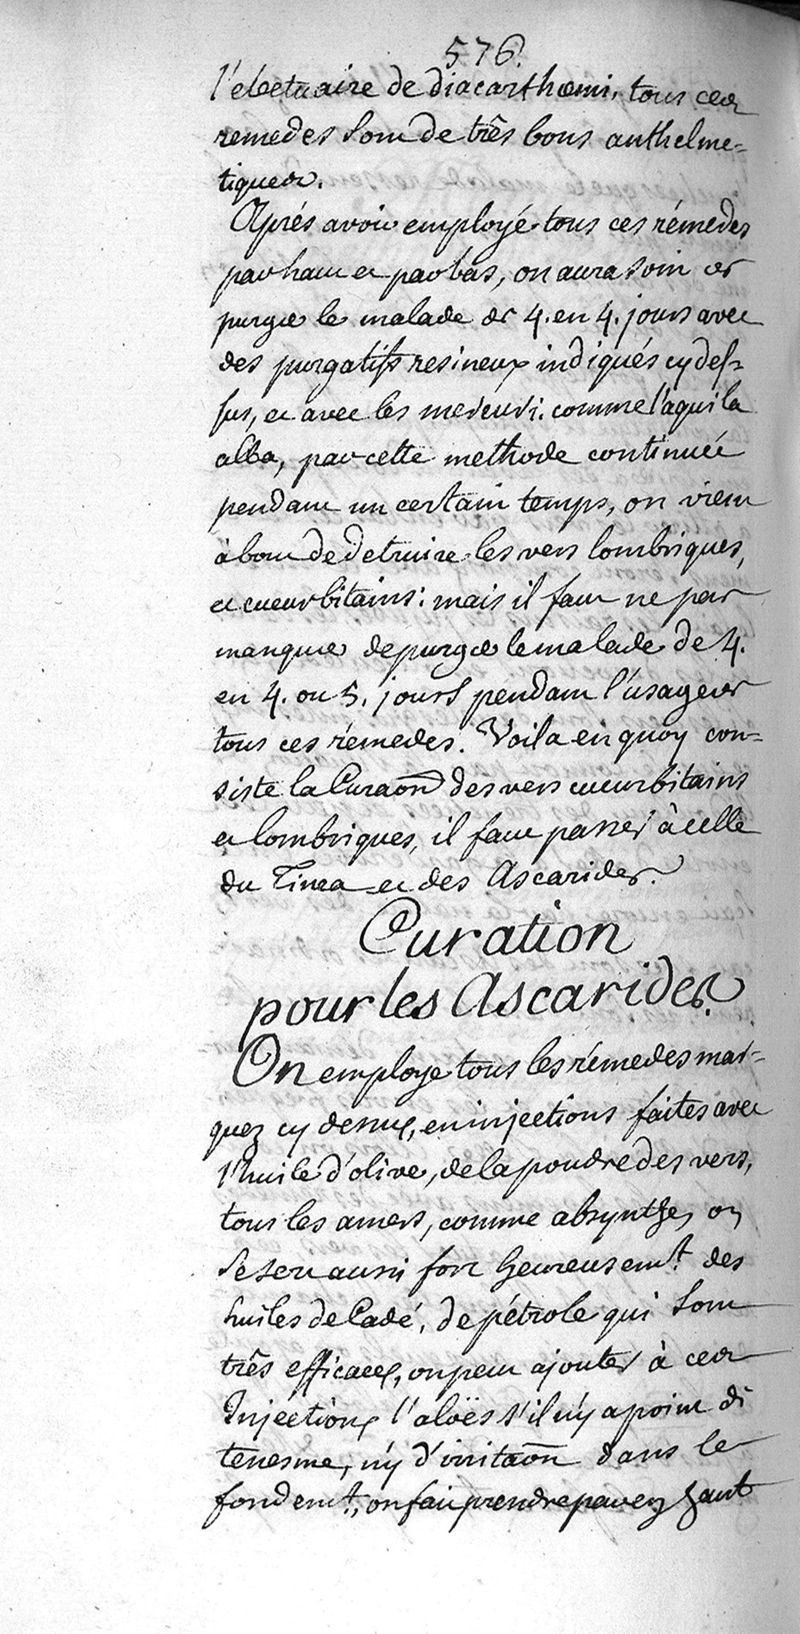 576.
l'electuaire de diacarthami, tous ces
remedes sont de três bons anthelme-
tiques.
Aprés avoir employé tous ces rémedes
par haut et par bas, on aura soin de
purger le malade de 4. en 4. jours avec
des purgatifs resineux indiqués cy des-
sus, et avec les mercuri: comme l'aquila
alba, par cette methode continuée
pendant un certain temps, on vient
à bout de detruire les vers lombriques,
et cucurbitains: mais il faut ne pas
manquer de purger le malade de 4.
en 4. ou 5. jours pendant l'usage de
tous ces rémedes. Voila en quoy con-
siste la Curaon des vers cucurbitains
et lombriques, il faut passer à celle
du Tinea et des Ascarides.
Curation
pour les Ascarides.
On employe tous les rémedes mar-
quez cy dessus, en injections faites avec
l'huile d'olive, de la poudre des vers,
tous les amers, comme absynthe, on
se sert aussi fort heureusemt. des
huiles de Cadé, de pétrole qui sont
três efficaces, on peut ajouter à ces
Injections l'aloës s'il n'y a point de
tenesme, n'y d'irritaon dans le
fondemt., on fait prendre par en haut